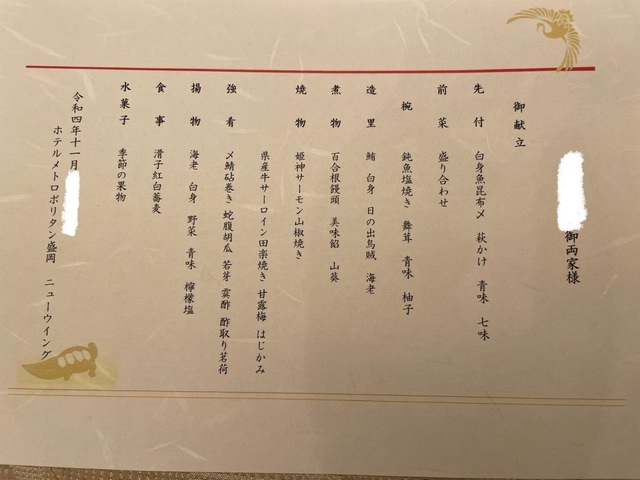 御両家様
御献立
先付 白身魚昆布〆 萩かけ 青味 七味
前菜 盛り合わせ
椀 鈍魚塩焼き 舞茸 青味 柚子
造里 鮪 白身 日の出烏賊 海老
煮物 百合根饅頭 美味餡 山葵
焼物 姫神サーモン山椒焼き
県産牛サーロイン田楽焼き 甘露梅 はじかみ
強肴 〆鯖砧巻き 蛇腹胡瓜 若芽 霙酢 酢取り茗荷
揚物 海老 白身 野菜 青味 檸檬塩
食事 滑子紅白蕎麦
水菓子 季節の果物
令和四年十一月
ホテルメトロポリタン盛岡 ニューウイング